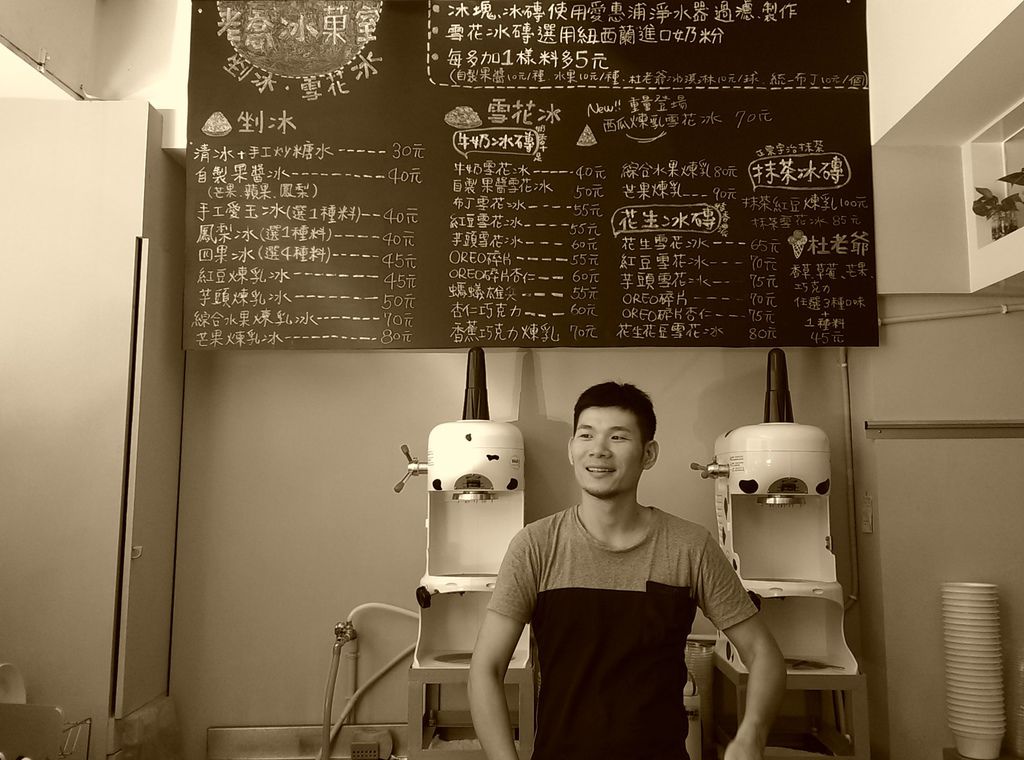 老喬冰菓室
剉冰·雪花冰
冰塊、冰磚使用愛惠浦淨水器過濾製作
雪花冰磚選用紐西蘭進口奶粉
每多加1樣料多5元
(自製果醬10元/種、水果10元/種、杜老爺冰淇淋10元/球、統一布丁10元/個)
剉冰
清冰+手工炒糖水 30元
自製果醬冰 40元
(芒果、蘋果、鳳梨)
手工愛玉冰(選1種料) 40元
鳳梨冰(選1種料) 40元
四果冰(選4種料) 45元
紅豆煉乳冰 45元
芋頭煉乳冰 50元
綜合水果煉乳冰 70元
芒果煉乳冰 80元
雪花冰
牛奶冰磚
牛奶雪花冰 40元
自製果醬雪花冰 50元
布丁雪花冰 55元
紅豆雪花冰 55元
芋頭雪花冰 60元
OREO碎片 55元
OREO碎片杏仁 60元
螞蟻雄尖 55元
杏仁巧克力 60元
香蕉巧克力煉乳 70元
New!! 重量登場
西瓜煉乳雪花冰 70元
綜合水果煉乳 80元
芒果煉乳 90元
花生冰磚
花生雪花冰 65元
紅豆雪花冰 70元
芋頭雪花冰 75元
OREO碎片 70元
OREO碎片杏仁 75元
花生花豆雪花冰 80元
正宗宇治抹茶
抹茶冰磚
抹茶紅豆煉乳 100元
抹茶雪花冰 85元
杜老爺
香草、草莓、芒果、
巧克力
任選3種口味
+
1種料
45元